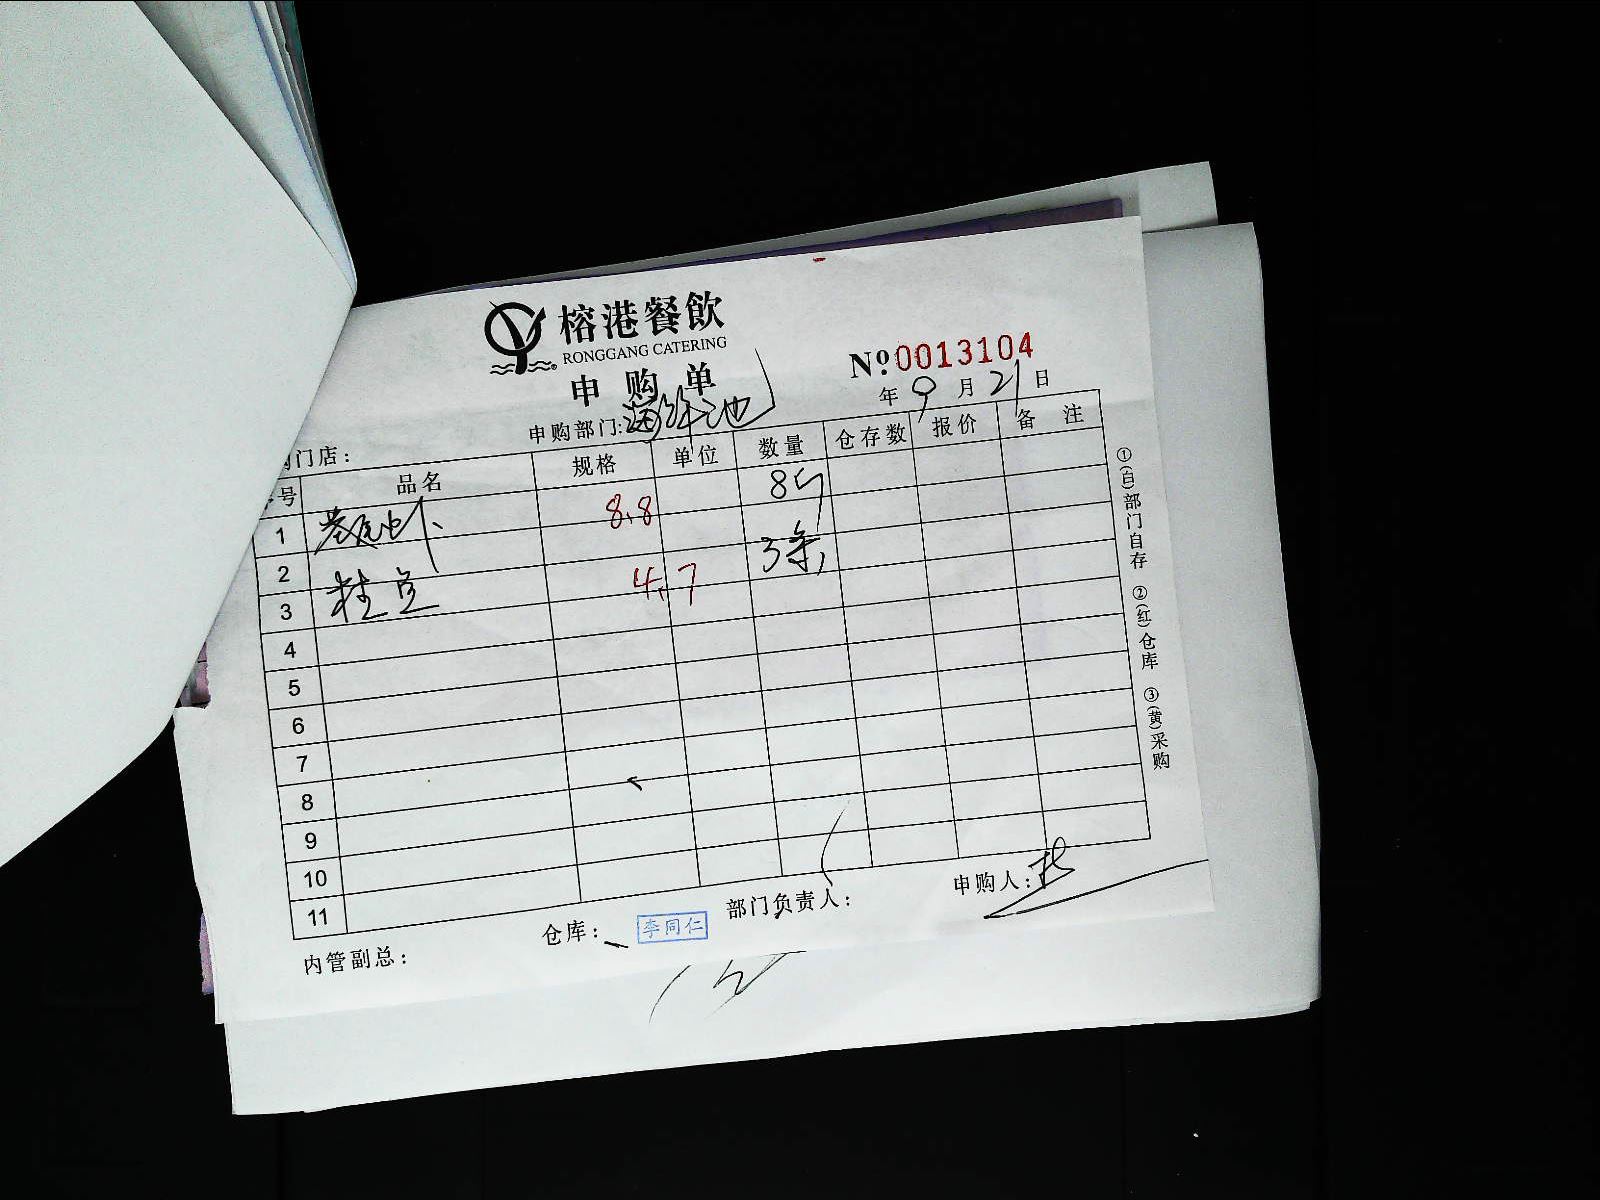 榕港餐飲
RONGGANG CATERING
申购单
№ 0013104
年 9 月 21 日
申购部门: 海鲜池
门店:
号 品名 规格 单位 数量 仓存数 报价 备注
1 8.8 8斤
2 3条
3 桂鱼 4.7
4
5
6
7
8
9
10
11
①(白)部门自存 ②(红)仓库 ③(黄)采购
内管副总: 仓库: 李同仁 部门负责人: 申购人: